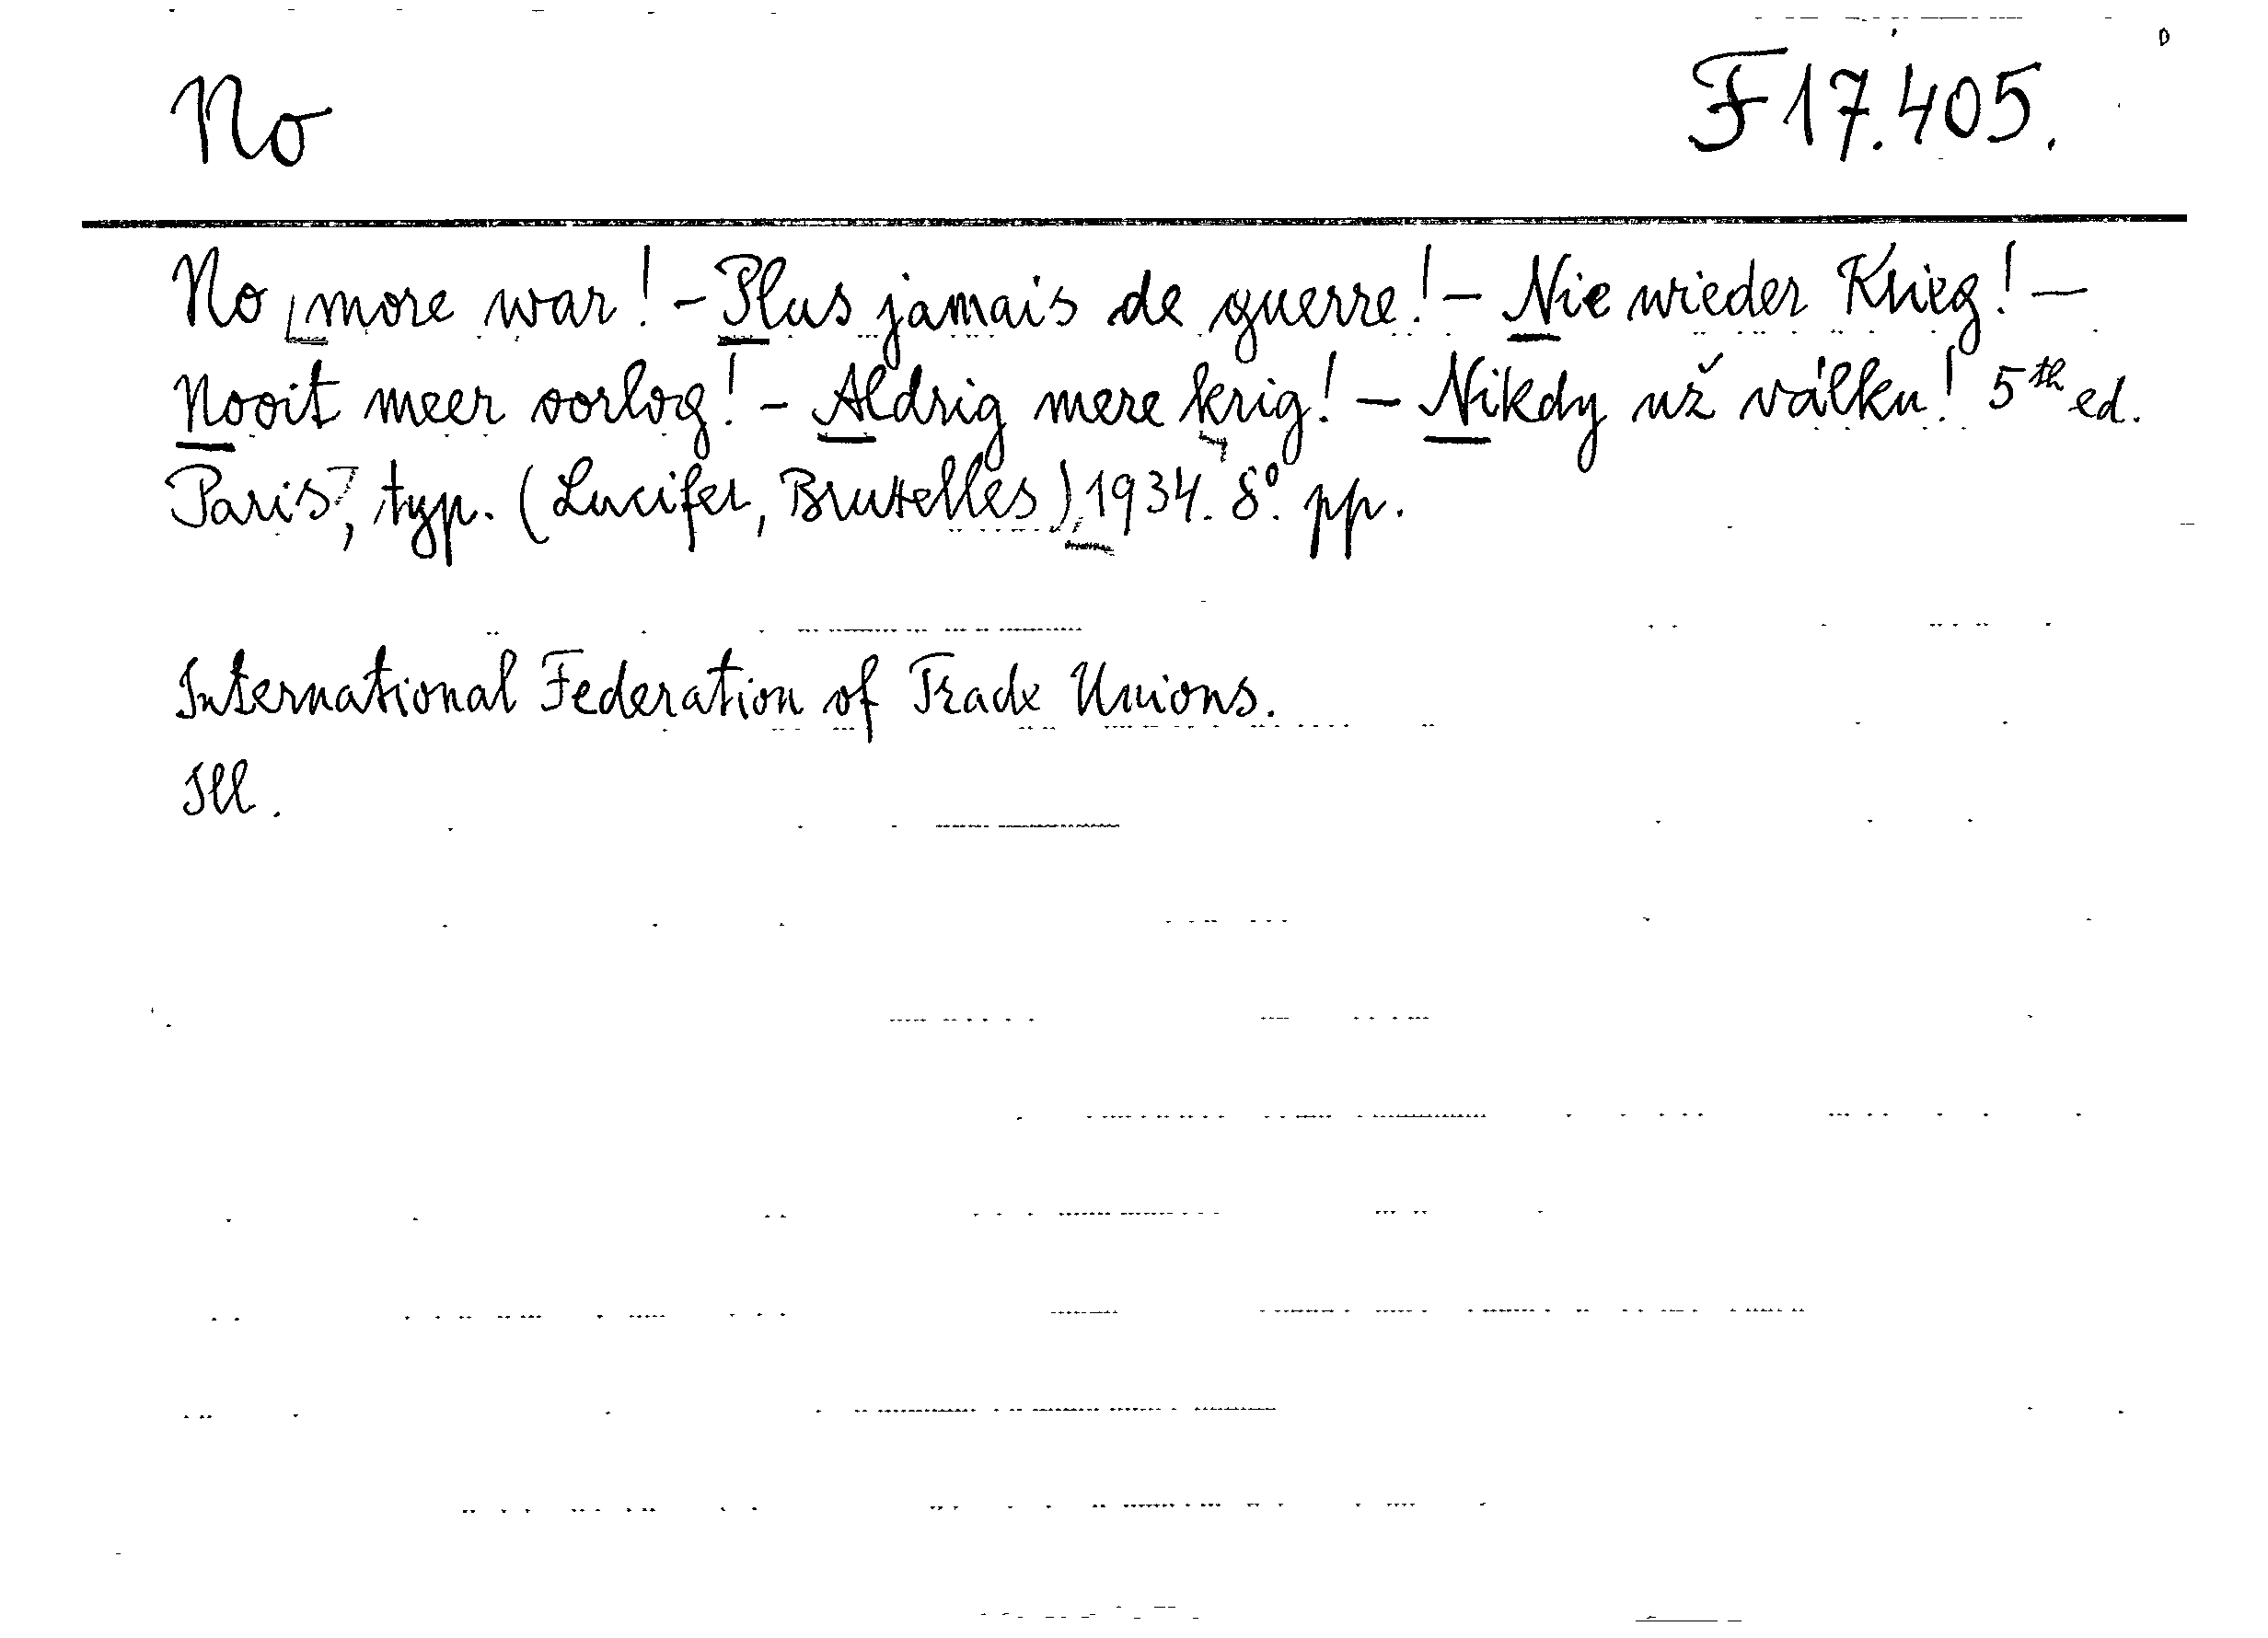 No
F 17.405.
No more war! - Plus jamais de guerre! - Nie wieder Krieg! -
Nooit meer oorlog! - Aldrig mere krig! - Nikdy už válku! 5th ed.
Paris, typ. (Lucifer, Bruxelles), 1934. 8º. pp.
International Federation of Trade Unions.
Ill.